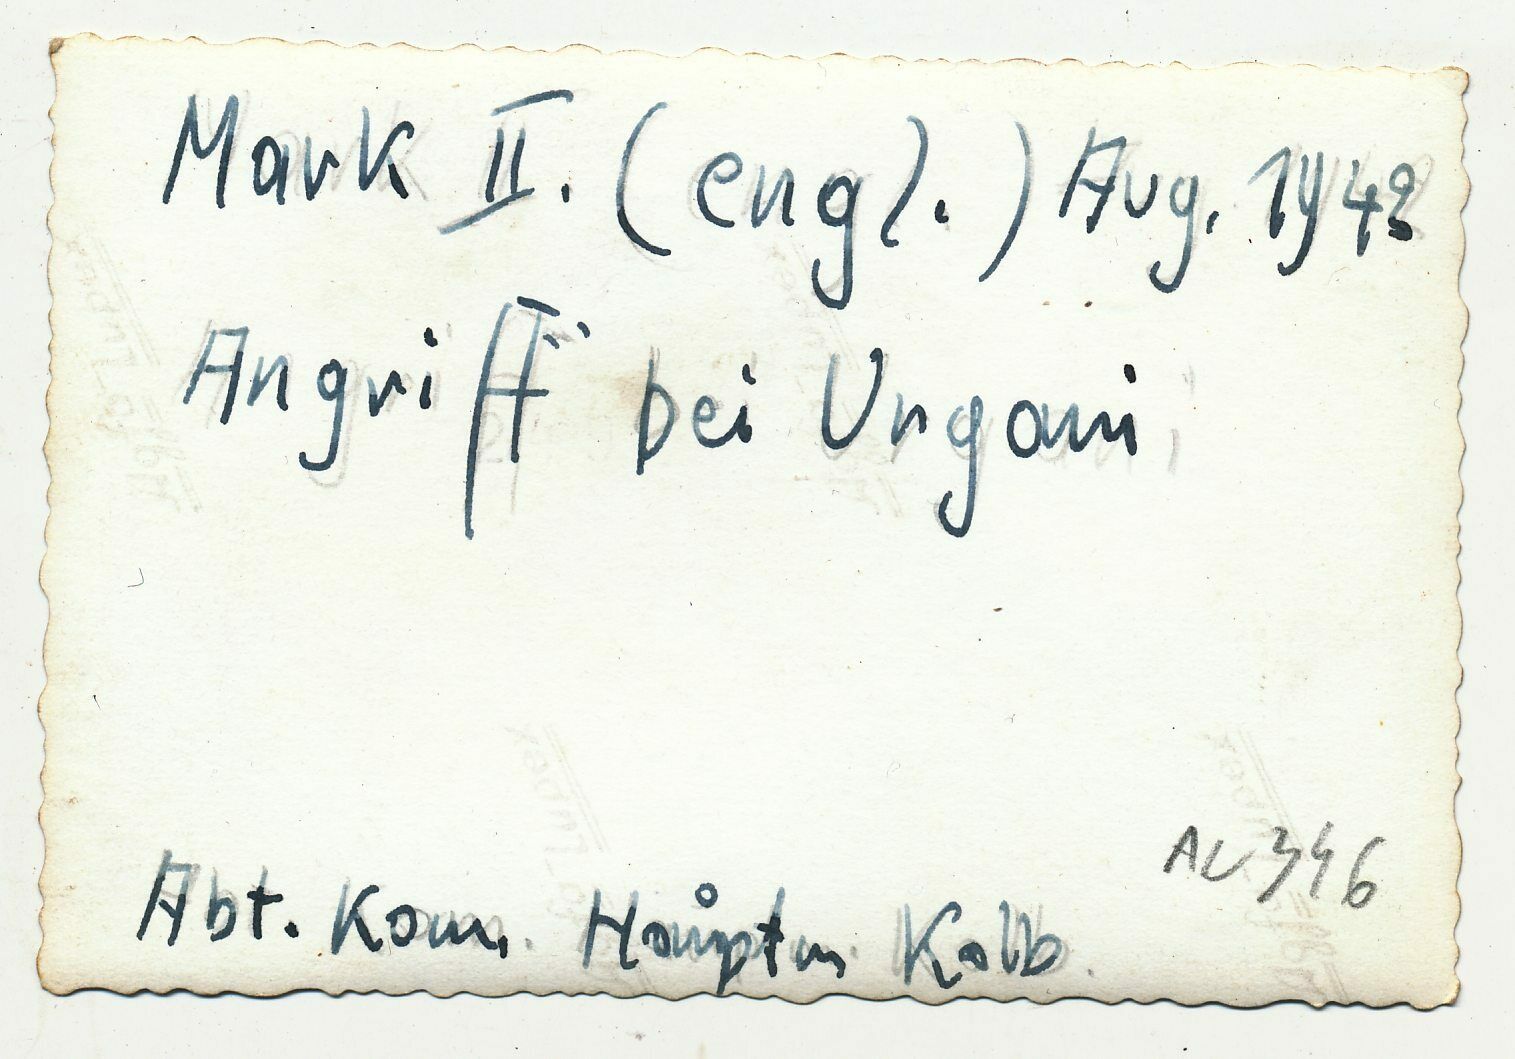 Mark II. (engl.) Aug. 1942
Angriff bei Ungarn
AL 346
Abt. Kom. Hauptm Kolb